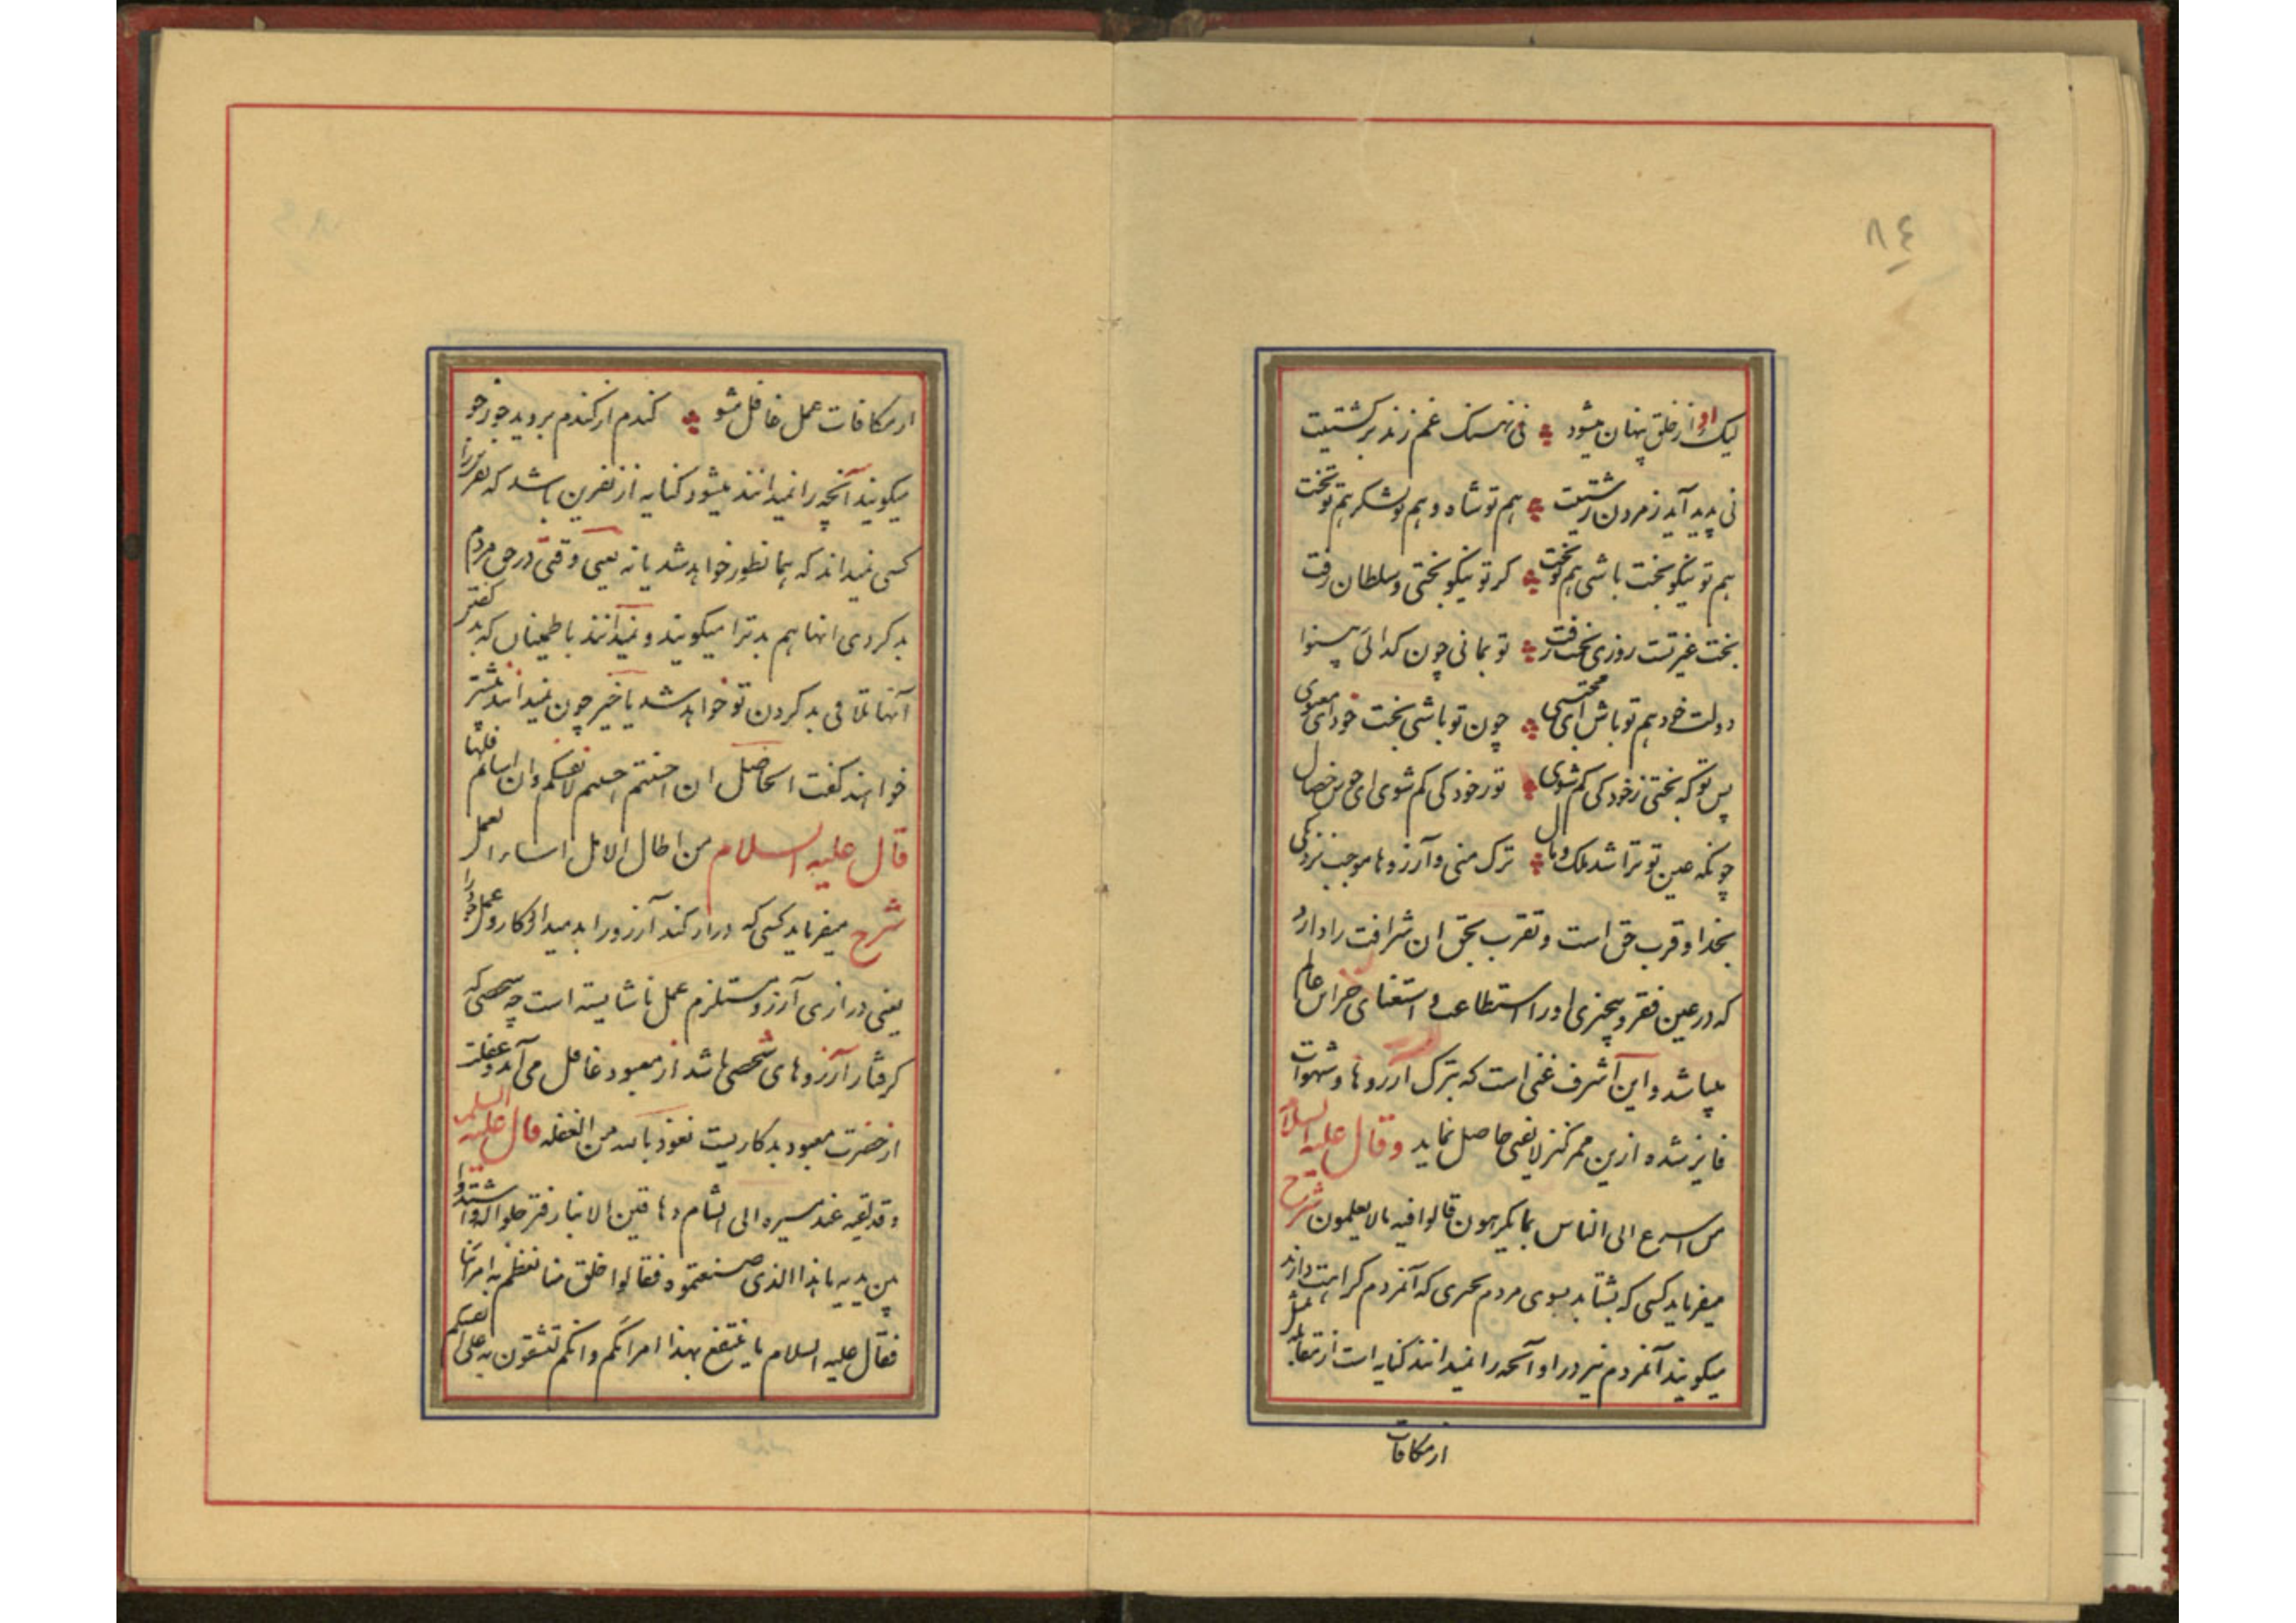 ٨٤
لیک او از خلق پنهان میشود نی نهنک غم زند بر کشتیت
نی پدید آید ز مردن زشتیت هم تو شاه و هم تو لشکر هم تو تخت
هم تو نیکو بخت باشی هم تو بخت کر تو نیکو بختی و سلطان زفت
بخت غیر تست روزی بخت رفت تو بمانی چون کدای بینوا
دولت خود هم تو باش ای مجتبی چون تو باشی بخت خود ای معنوی
پس تو که بختی ز خود کی کم شوی تو ز خود کی کم شوی ای خوش خصال
چونکه عین تو ترا شد ملک و مال ترک منی و آرزوها موجب نزدیکی
بخدا و قرب حق است و تقرب بحق ان شرافت را دارد
که در عین فقر و بیچیزی او را استطاعت و استغنای عالم
میباشد و این اشرف غنی است که بترک آرزوها و شهوات
فایز شده ازین ممر کنز لایفنی حاصل نماید وقال علیه السلام
من اسرع الی الناس بما یکرهون قالوا فیه مالا یعلمون شرح
میفرماید کسی که بشتابد بسوی مردم بچیزی که آنمردم کراهت دارند
میکویند آنمردم نیز در او آنچه را نمیدانند کنایه است از مقابله بمثل
از مکافات
از مکافات عمل غافل مشو کندم از کندم بروید جو ز جو
میکویند آنچه را نمیدانند میشود کنایه از نفرین باشد که نفرین را
کسی نمیداند که همانطور خواهد شد یا نه یعنی وقتی در حق مردم
بد کردی انها هم بد ترا میکویند و نمیدانند باطمینان که بد کفتن
آنها تلافی بد کردن تو خواهد شد یا خیر چون نمیدانند بیشتر
خواهند کفت الحاصل ان احسنتم احسنتم لانفسکم وان اساتم فلها
قال علیه السلام من اطال الامل اساء العمل
شرح میفرماید کسی که دراز کند آرزو را بد میدارد کار و عمل خود را
یعنی درازی آرزو مستلزم عمل ناشایسته است چه شخصی که
کرفتار آرزوهای شخصی باشد از معبود غافل می آید و غفلت
از حضرت معبود بدکاریست نعوذ بالله من الغفله قال علیه السلم
وقد لقیه عند مسیره الی الشام دهاقین الانبار فترجلوا له واشتدوا
بین یدیه ما هذا الذی صنعتموه فقالوا خلق منا نعظم به امرائنا
فقال علیه السلام ما ینتفع بهذا امرائکم وانکم لتشقون به علی انفسکم